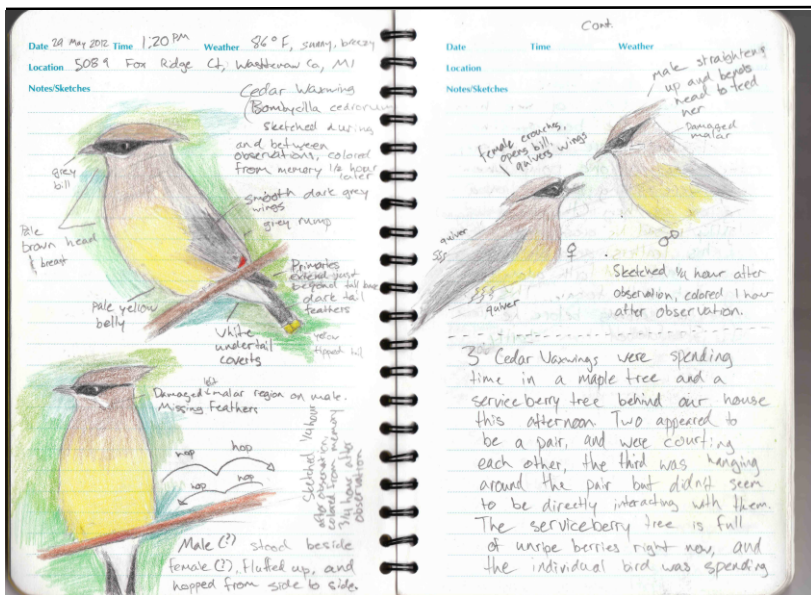 Date 29 May 2012 Time 1:20 PM Weather 86° F, sunny, breezy
Location 5089 Fox Ridge Ct, Washtenaw Co, MI
Notes/Sketches
Cedar Waxwing
(Bombycilla cedrorum)
Sketched during
and between
observations, colored
from memory 1/2 hour
later
grey
bill
Smooth dark grey
wings
grey rump
Pale
brown head
& breast
Primaries
extend just
beyond tail base
dark tail
feathers
Pale yellow
belly
White
undertail
coverts
yellow
tipped tail
left
Damaged malar region on male.
Missing Feathers
hop hop
hop hop
Sketched 1/4 hour
after observation,
colored from memory
3/4 hour after
observation
Male (?) stood beside
female (?), fluffed up, and
hopped from side to side.
Cont.
Date Time Weather
Location
Notes/Sketches
male straightens
up and bends
head to feed
her
Damaged
malar
female crouches,
opens bill,
quivers wings
quiver
♀
quiver
Sketched 1/4 hour after
observation, colored 1 hour
after observation.
3 Cedar Waxwings were spending
time in a maple tree and a
serviceberry tree behind our house
this afternoon. Two appeared to
be a pair, and were courting
each other, the third was hanging
around the pair but didn't seem
to be directly interacting with them.
The serviceberry tree is full
of unripe berries right now, and
the individual bird was spending